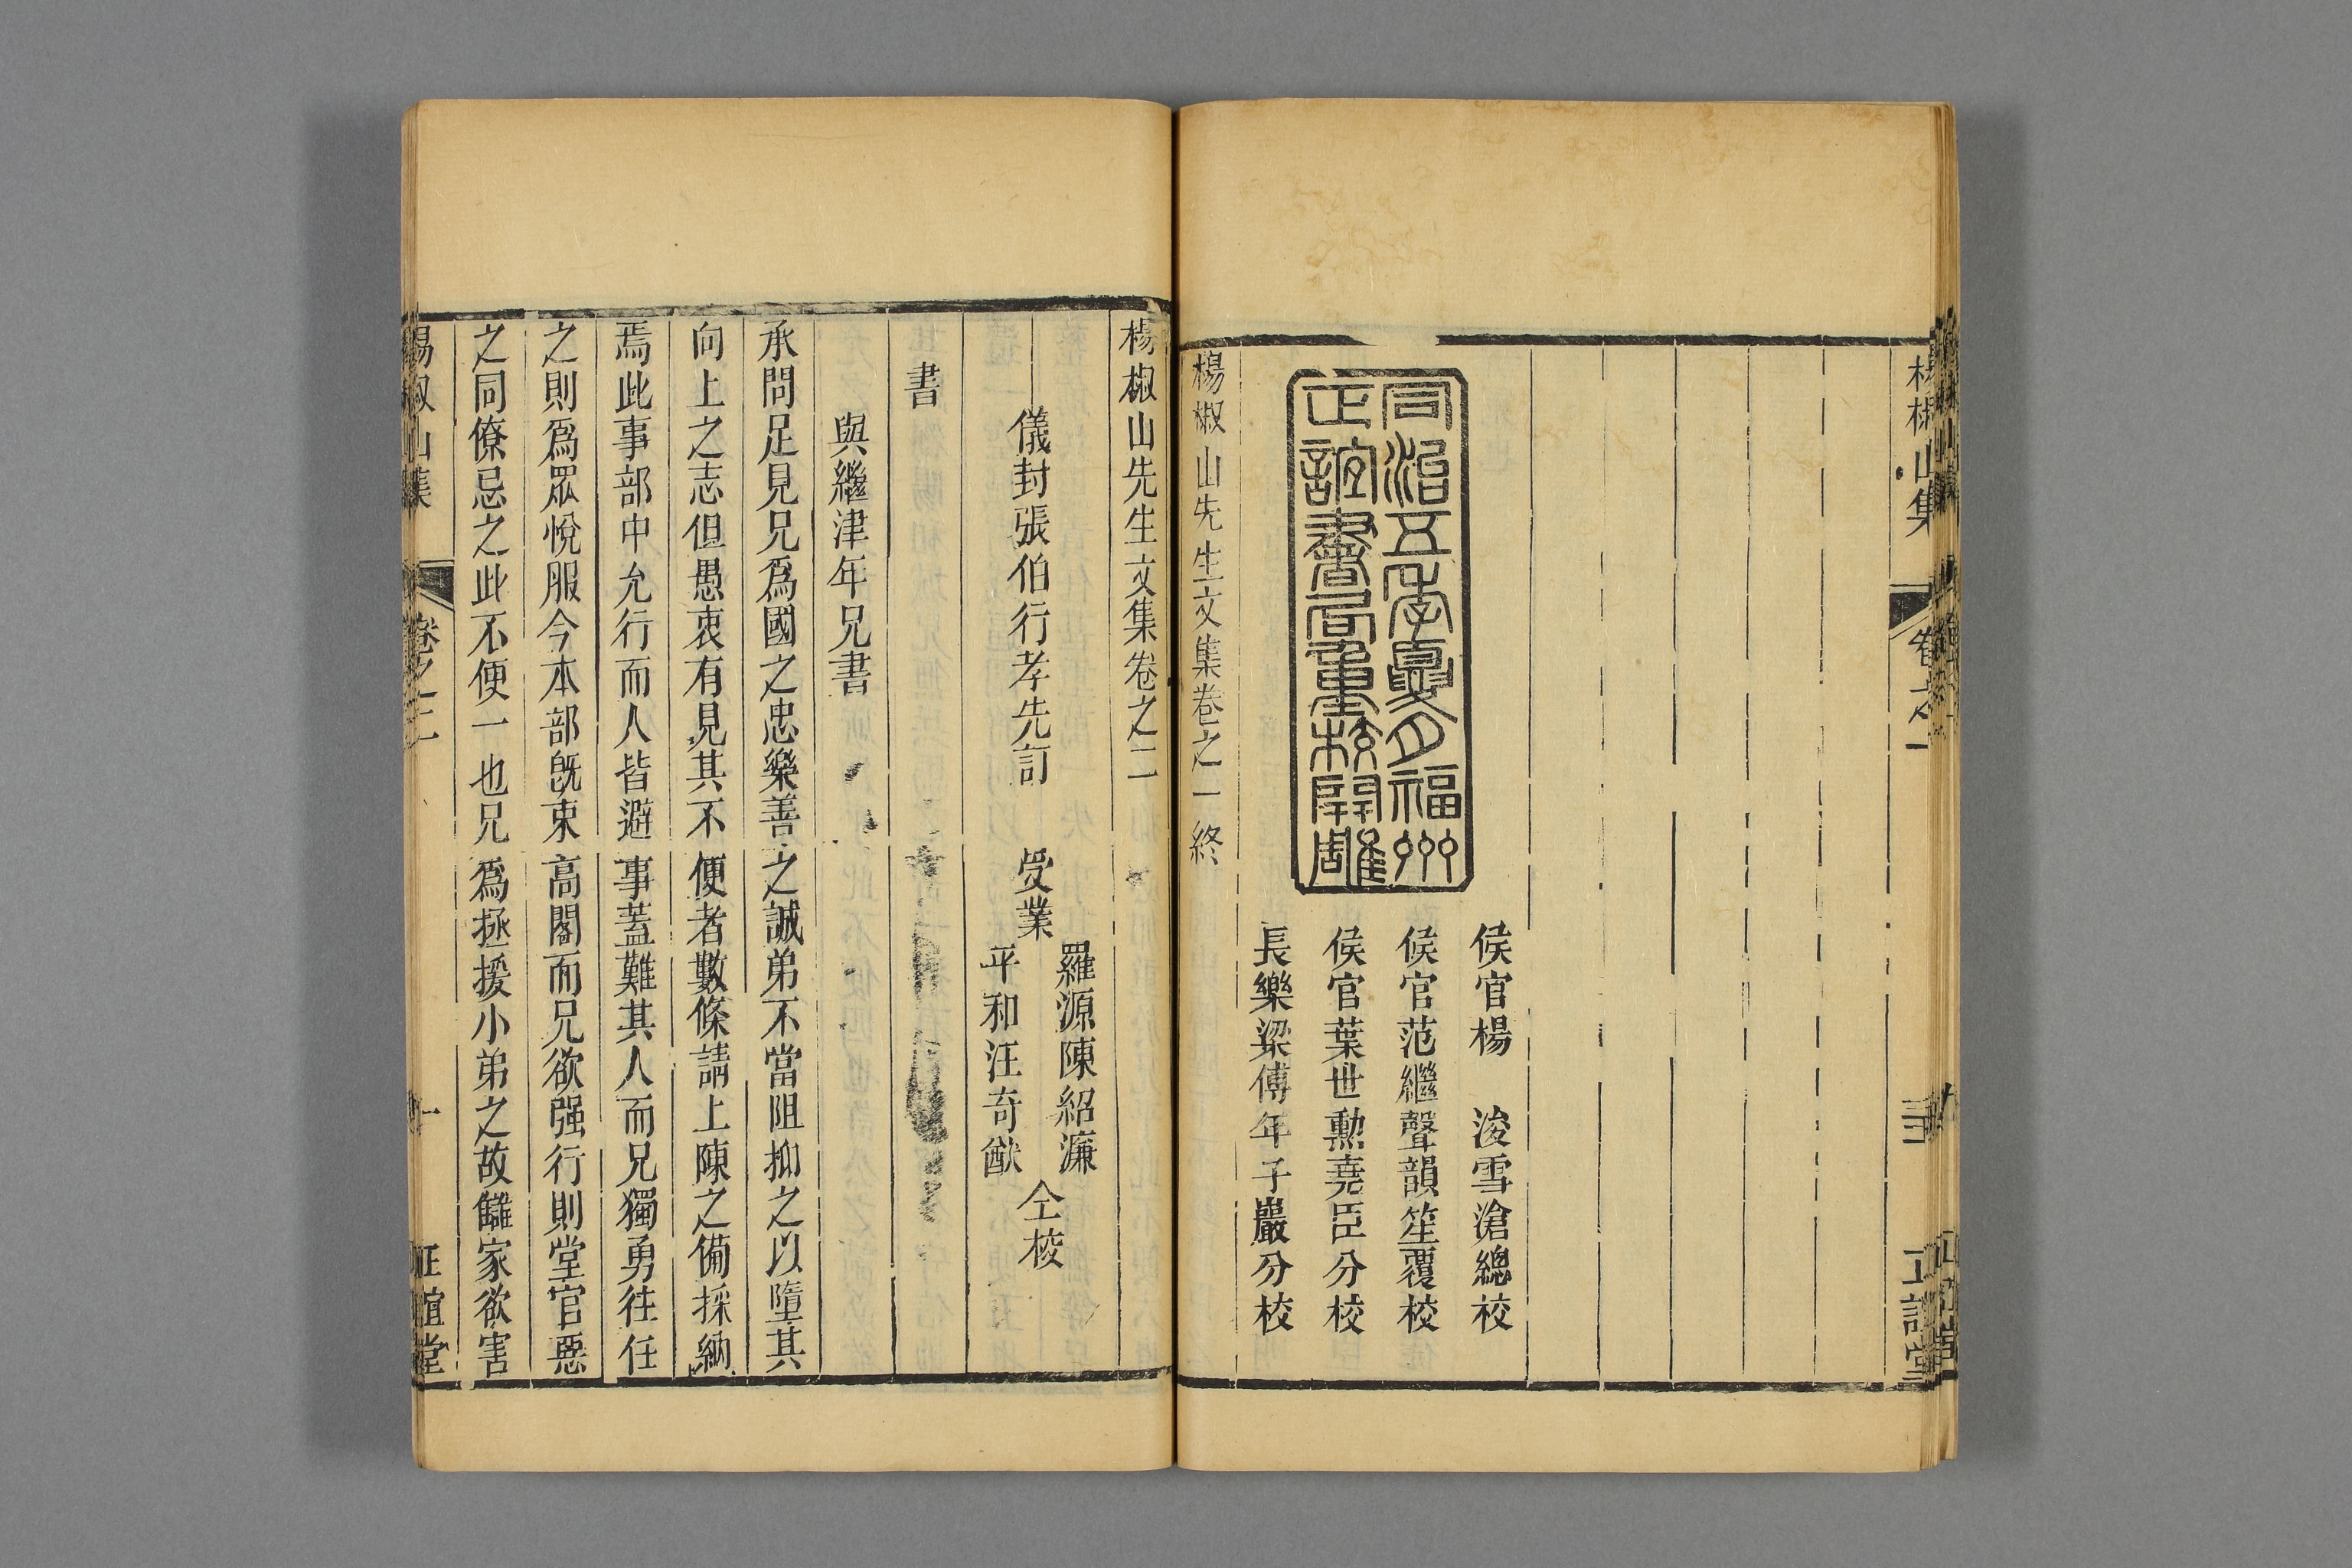 楊椒山集
卷之一
正誼堂
候官楊　浚雪滄總校
候官范繼聲韻笙覆校
候官葉世勳堯臣分校
長樂梁傅年子巖分校
同治五年夏月福州
正誼書局重校開雕
楊椒山先生文集卷之一終
楊椒山先生文集卷之二
儀封張伯行孝先訂　受業
羅源陳紹濂
平和汪奇猷
仝校
書
與繼津年兄書
承問足見兄爲國之忠樂善之誠弟不當阻抑之以墮其
向上之志但愚衷有見其不便者數條請上陳之備採納
焉此事部中允行而人皆避事蓋難其人而兄獨勇往任
之則爲眾悅服今本部旣束高閣而兄欲强行則堂官惡
之同僚忌之此不便一也兄爲拯援小弟之故讎家欲害
楊椒山集
卷之二
一
正誼堂